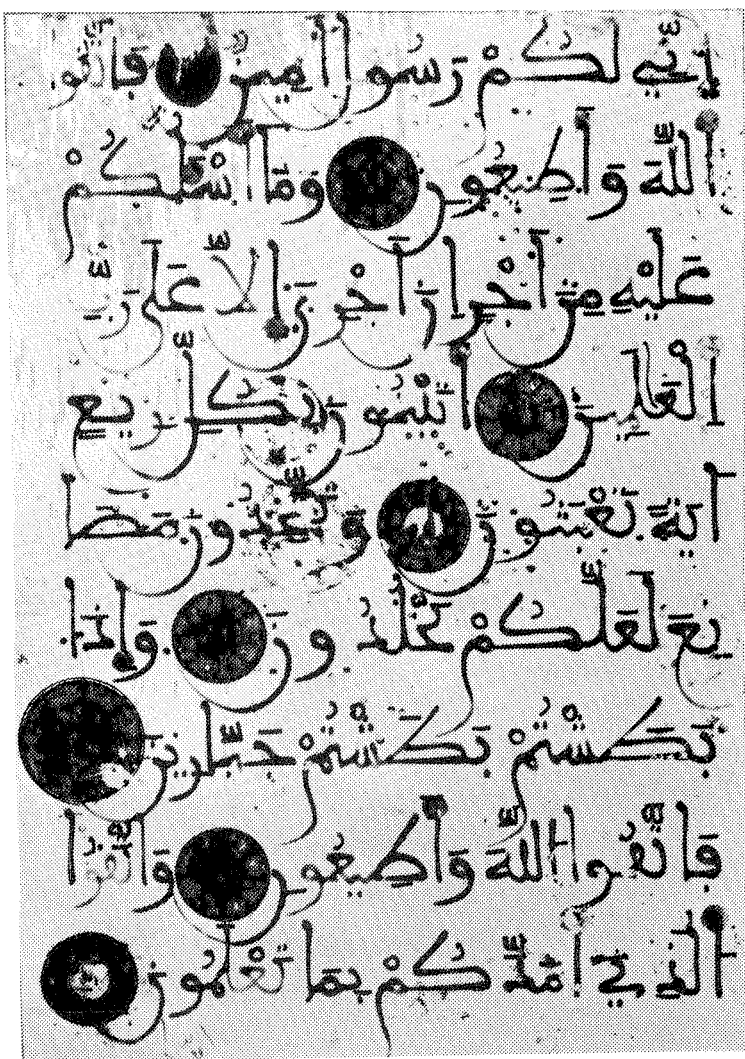 إِنِّي لَكُمْ رَسُولٌ أَمِينٌ فَاتَّقُوا
اللَّهَ وَأَطِيعُونِ وَمَا أَسْـَٔلُكُمْ
عَلَيْهِ مِنْ أَجْرٍ إِنْ أَجْرِيَ إِلَّا عَلَىٰ رَبِّ
الْعَٰلَمِينَ أَتَبْنُونَ بِكُلِّ رِيعٍ
ءَايَةً تَعْبَثُونَ وَتَتَّخِذُونَ مَصَا
نِعَ لَعَلَّكُمْ تَخْلُدُونَ وَإِذَا
بَطَشْتُمْ بَطَشْتُمْ جَبَّارِينَ
فَاتَّقُوا اللَّهَ وَأَطِيعُونِ وَاتَّقُوا
الَّذِي أَمَدَّكُمْ بِمَا تَعْلَمُونَ